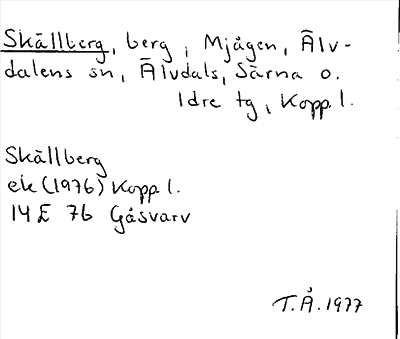 Skällberg, berg, Mjågen, Älv-
dalens sn, Älvdals, Särna o.
Idre tg, Kopp. l.
Skällberg
ek (1976) Kopp l.
14 E 7b Gåsvarv
T.Å. 1977